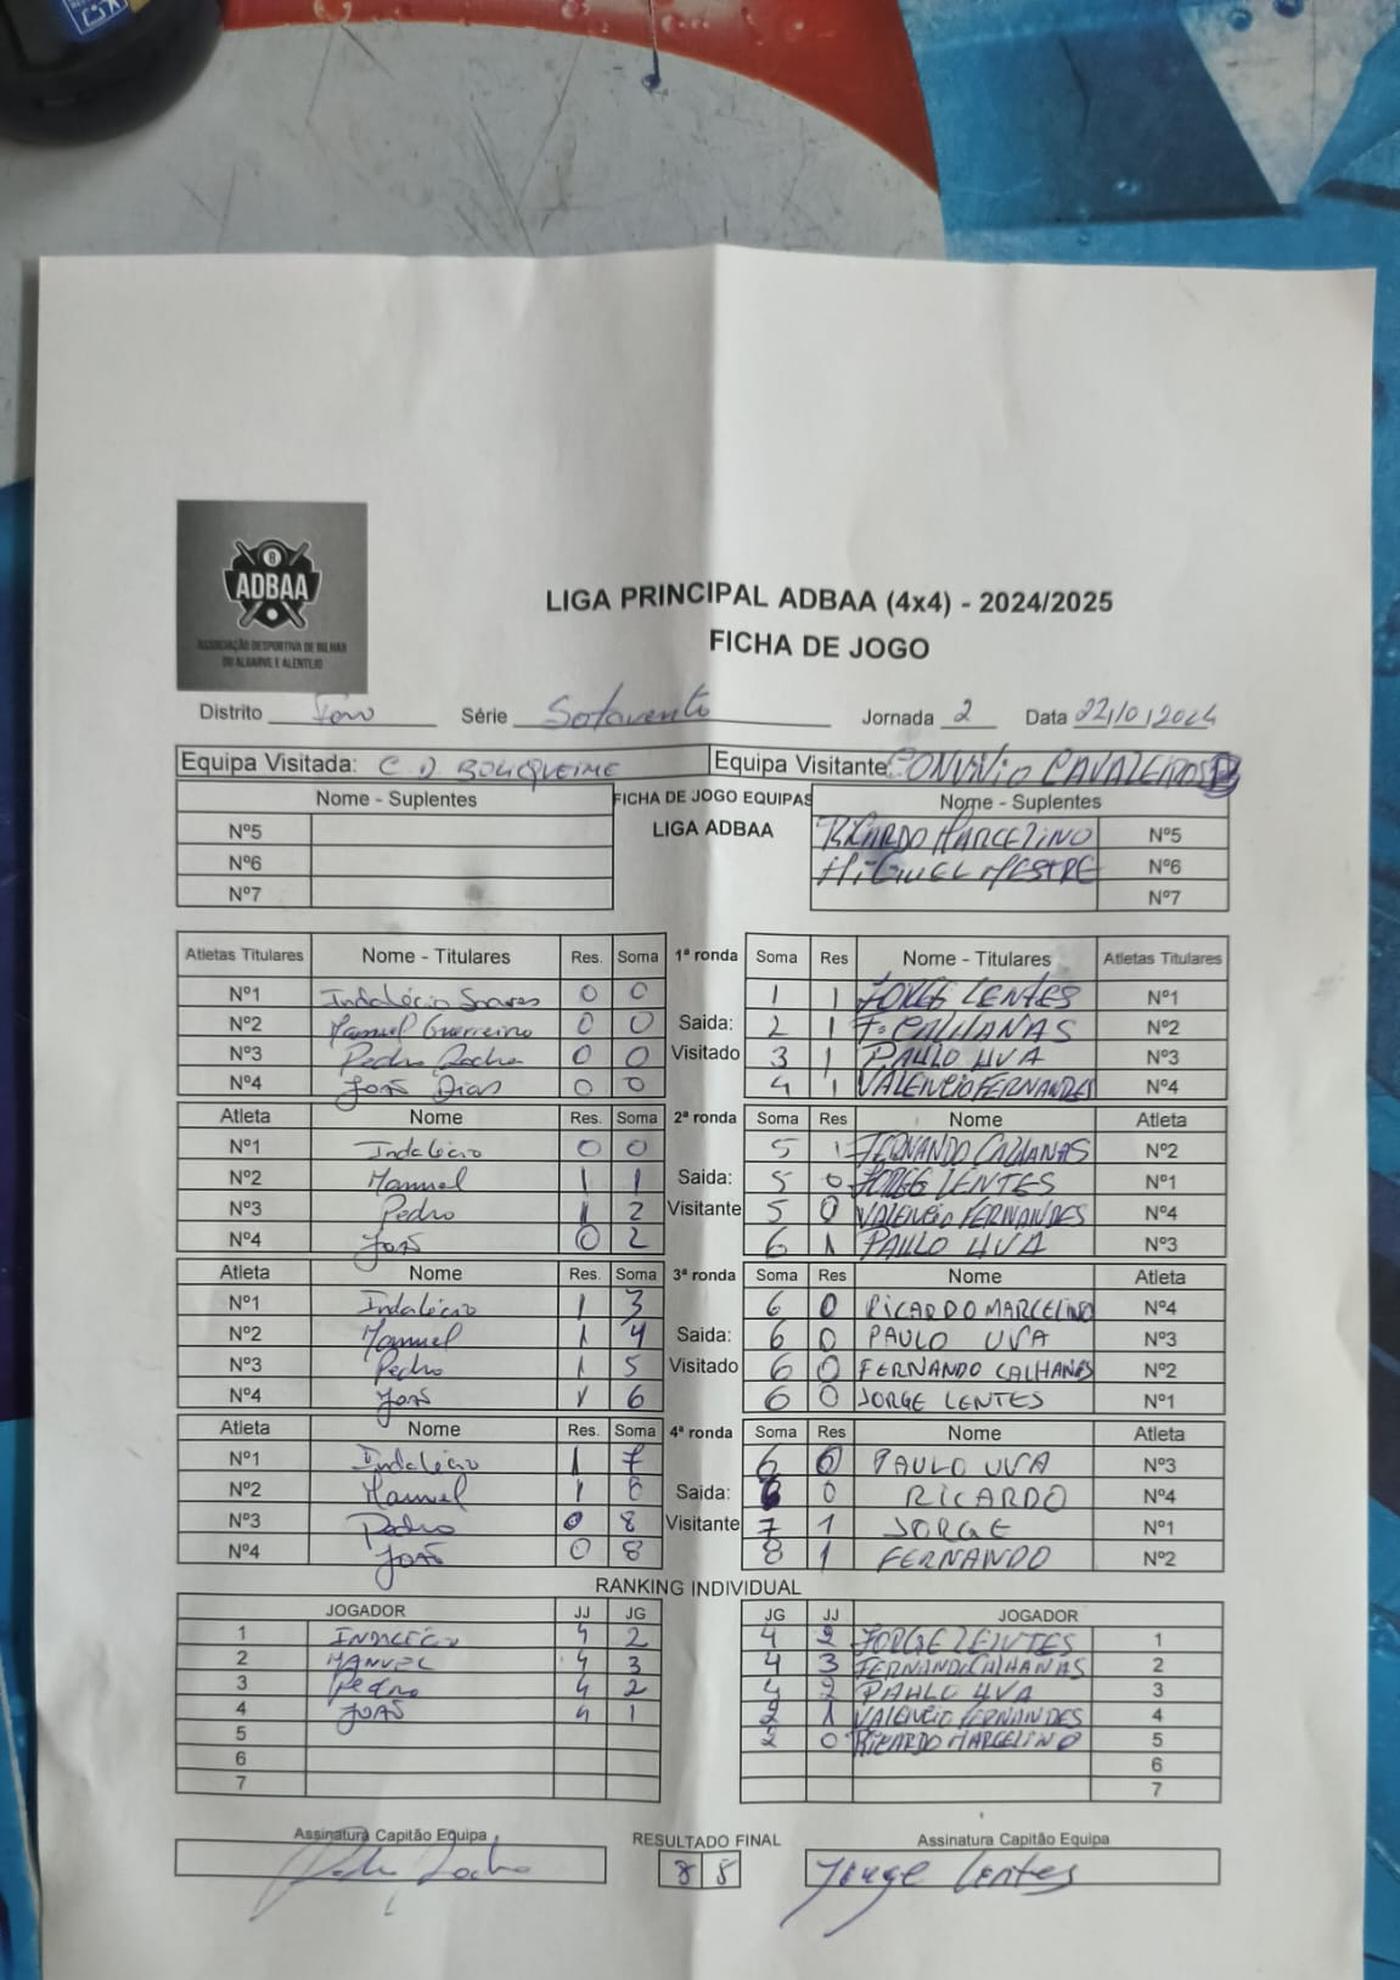 ADBAA
ASSOCIAÇÃO DESPORTIVA DE BILHAR
DO ALGARVE E ALENTEJO
LIGA PRINCIPAL ADBAA (4x4) - 2024/2025
FICHA DE JOGO
Distrito Faro Série Sotavento Jornada 2 Data 22/10/2024
Equipa Visitada: C.D. BOLIQUEIME Equipa Visitante: CONVÍVIO CAVALEIROS B
Nome - Suplentes FICHA DE JOGO EQUIPAS Nome - Suplentes
Nº5 LIGA ADBAA RICARDO MARCELINO Nº5
Nº6 MIGUEL MESTRE Nº6
Nº7 Nº7
Atletas Titulares Nome - Titulares Res. Soma 1ª ronda Soma Res Nome - Titulares Atletas Titulares
Nº1 Indalécio Soares 0 0 1 1 JORGE LENTES Nº1
Nº2 Manuel Guerreiro 0 0 Saida: 2 1 F. CALHANAS Nº2
Nº3 Pedro Rocha 0 0 Visitado 3 1 PAULO UVA Nº3
Nº4 João Dias 0 0 4 1 VALENCIO FERNANDES Nº4
Atleta Nome Res. Soma 2ª ronda Soma Res Nome Atleta
Nº1 Indalécio 0 0 5 1 FERNANDO CALHANAS Nº2
Nº2 Manuel 1 1 Saida: 5 0 JORGE LENTES Nº1
Nº3 Pedro 1 2 Visitante 5 0 VALENCIO FERNANDES Nº4
Nº4 João 0 2 6 1 PAULO UVA Nº3
Atleta Nome Res. Soma 3ª ronda Soma Res Nome Atleta
Nº1 Indalécio 1 3 6 0 RICARDO MARCELINO Nº4
Nº2 Manuel 1 4 Saida: 6 0 PAULO UVA Nº3
Nº3 Pedro 1 5 Visitado 6 0 FERNANDO CALHANAS Nº2
Nº4 João 1 6 6 0 JORGE LENTES Nº1
Atleta Nome Res. Soma 4ª ronda Soma Res Nome Atleta
Nº1 Indalécio 1 7 6 0 PAULO UVA Nº3
Nº2 Manuel 1 8 Saida: 6 0 RICARDO Nº4
Nº3 Pedro 0 8 Visitante 7 1 JORGE Nº1
Nº4 João 0 8 8 1 FERNANDO Nº2
RANKING INDIVIDUAL
JOGADOR JJ JG JG JJ JOGADOR
1 INDALÉCIO 4 2 4 2 JORGE LENTES 1
2 MANUEL 4 3 4 3 FERNANDO CALHANAS 2
3 Pedro 4 2 4 2 PAULO UVA 3
4 JOÃO 4 1 2 1 VALENCIO FERNANDES 4
5 2 0 RICARDO MARCELINO 5
6 6
7 7
Assinatura Capitão Equipa RESULTADO FINAL Assinatura Capitão Equipa
Pedro Rocha 8 8 Jorge Lentes